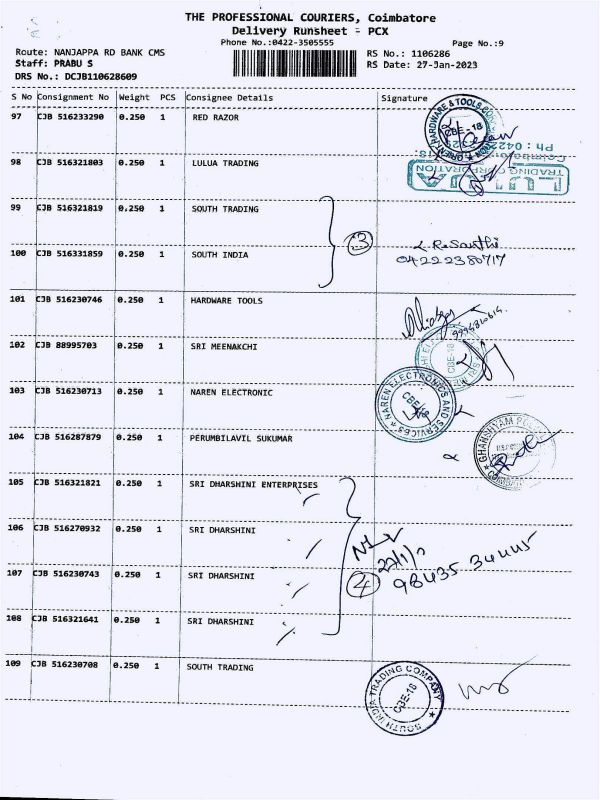 THE PROFESSIONAL COURIERS, Coimbatore
Delivery Runsheet - PCX
Phone No.:0422-3505555 Page No.:9
Route: NANJAPPA RD BANK CMS RS No.: 1106286
Staff: PRABU S RS Date: 27-Jan-2023
DRS No.: DCJB110628609
S No Consignment No Weight PCS Consignee Details Signature
97 CJB 516233290 0.250 1 RED RAZOR
HARDWARE & TOOLS CBE-18
98 CJB 516321803 0.250 1 LULUA TRADING
LULUA
TRADING CORPORATION
Ph : 0422
99 CJB 516321819 0.250 1 SOUTH TRADING
3
100 CJB 516331859 0.250 1 SOUTH INDIA
04222380717
101 CJB 516230746 0.250 1 HARDWARE TOOLS
102 CJB 88995703 0.250 1 SRI MEENAKCHI
CBE-18
103 CJB 516230713 0.250 1 NAREN ELECTRONIC
NAREN ELECTRONICS AND SERVICES CBE-18
104 CJB 516287879 0.250 1 PERUMBILAVIL SUKUMAR
GHANSHYAM
105 CJB 516321821 0.250 1 SRI DHARSHINI ENTERPRISES
106 CJB 516270932 0.250 1 SRI DHARSHINI
107 CJB 516230743 0.250 1 SRI DHARSHINI
4
98435 34445
108 CJB 516321641 0.250 1 SRI DHARSHINI
109 CJB 516230708 0.250 1 SOUTH TRADING
SOUTH INDIA TRADING COMPANY CBE-18